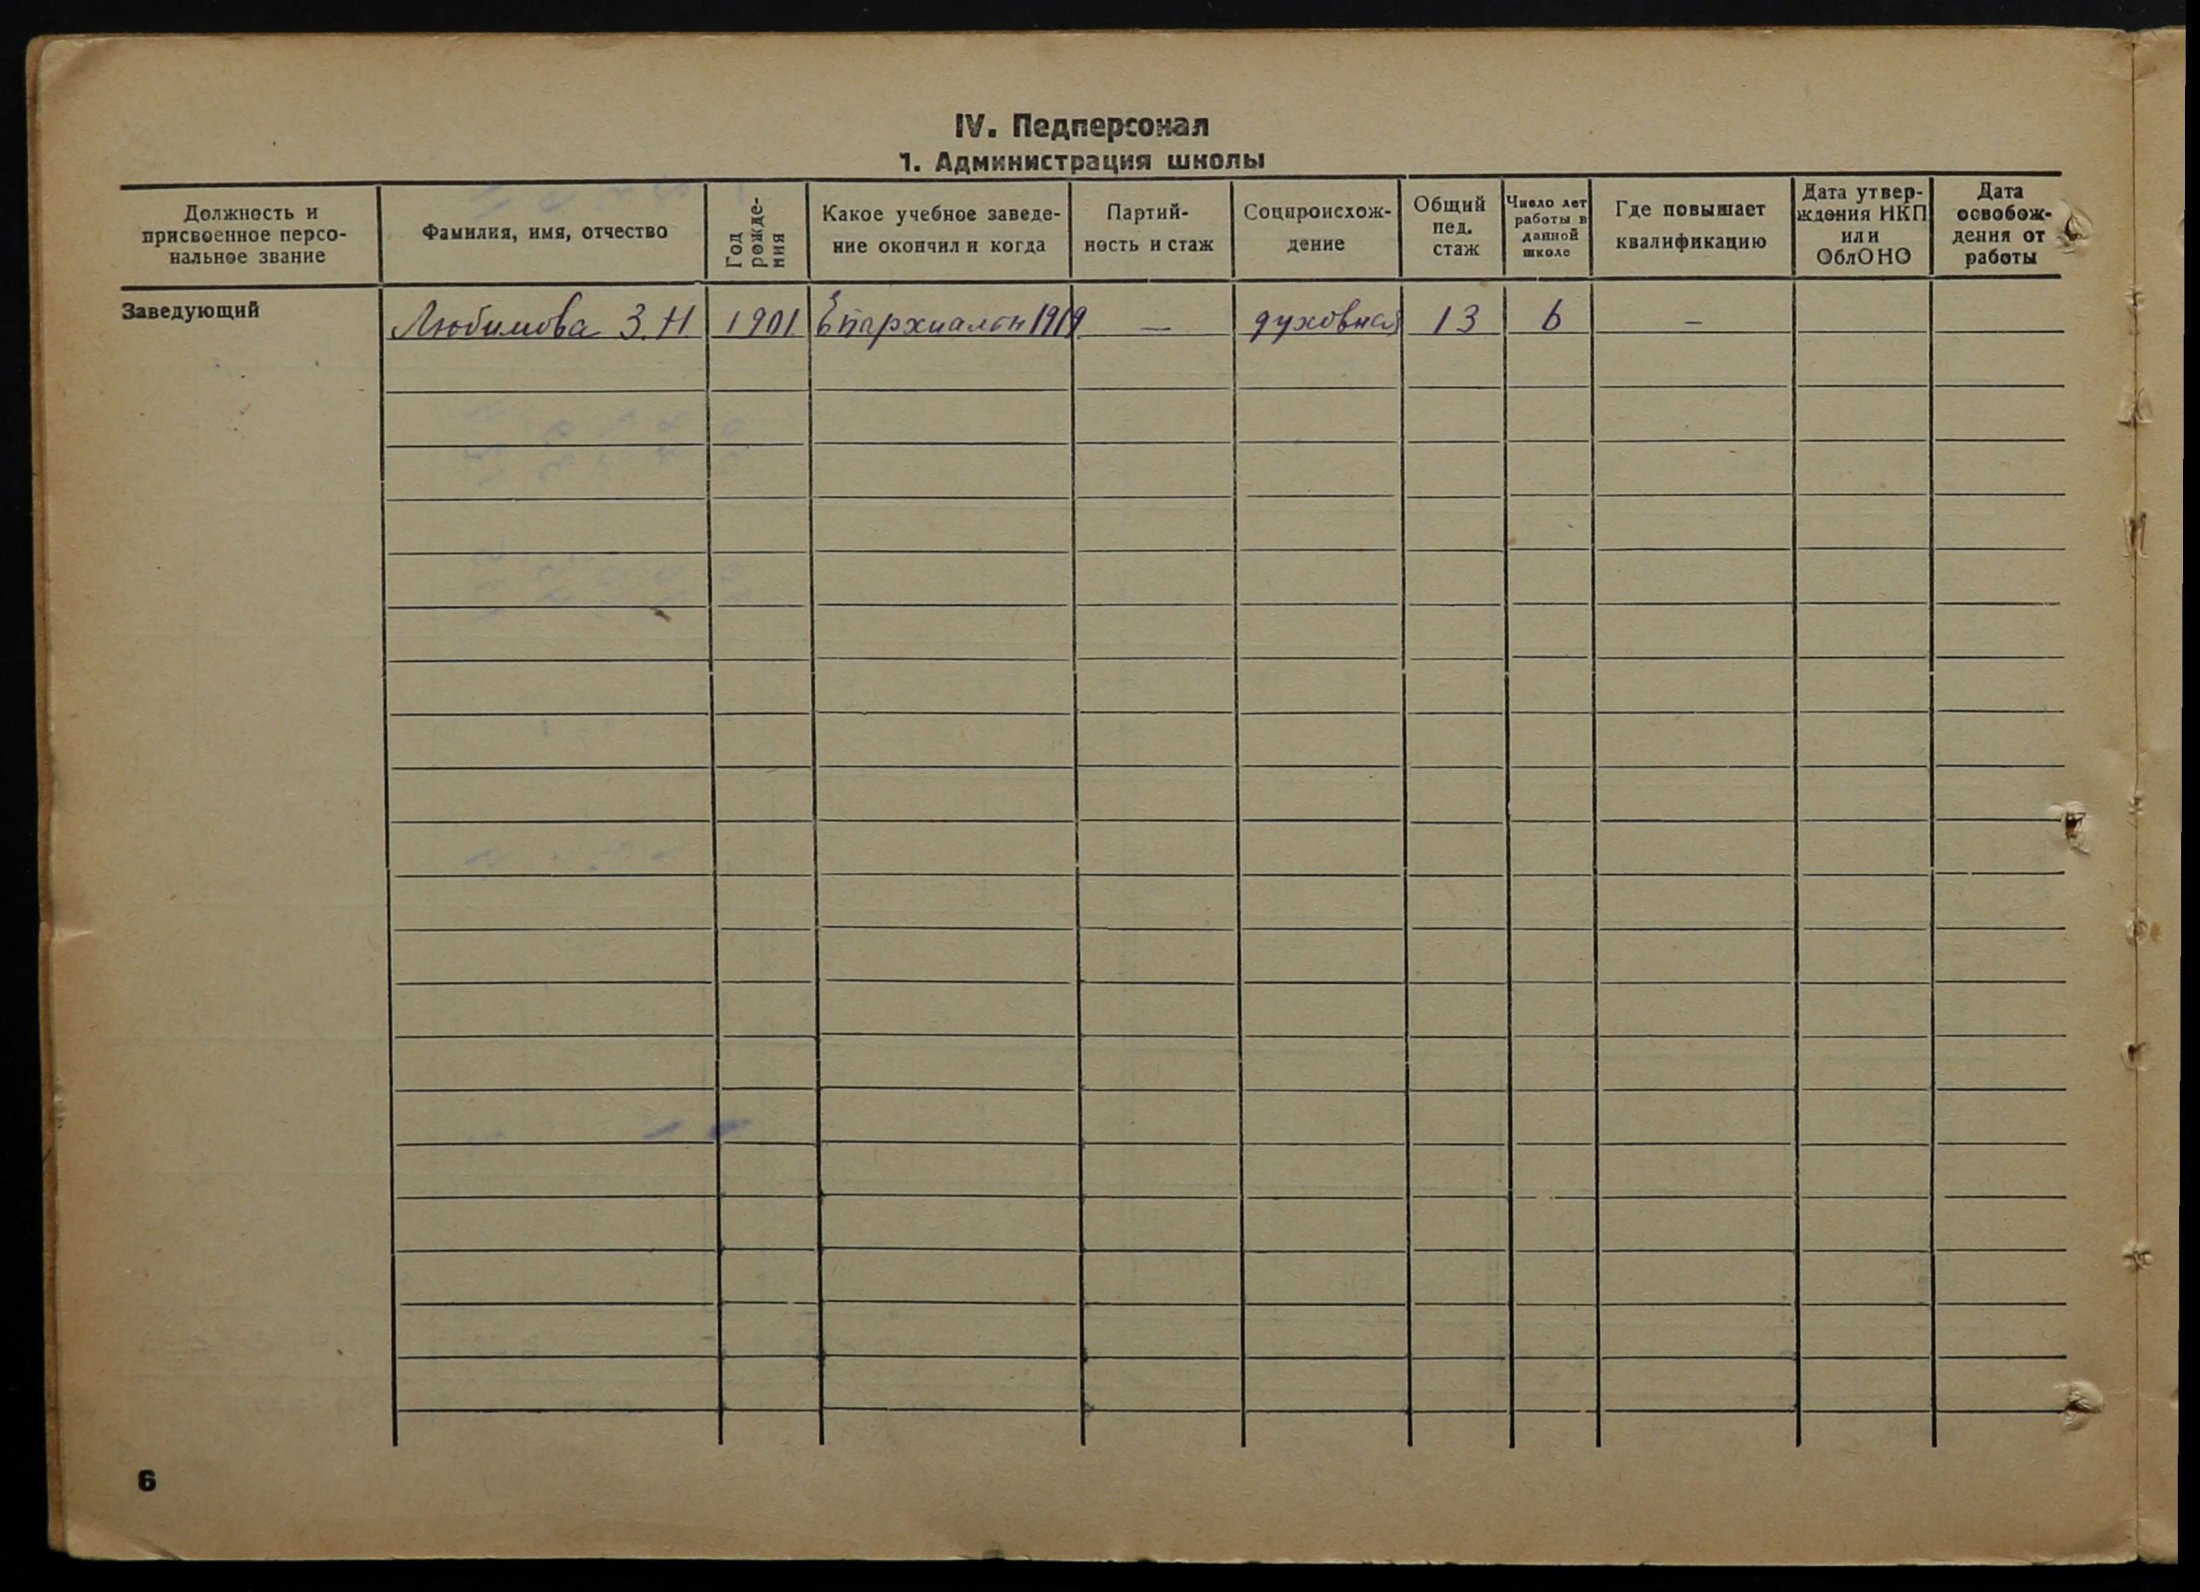 IV. Педперсонал
1. Администрация школы
Должность и
присвоенное персо-
нальное звание
Фамилия, имя, отчество
Год
рожде-
ния
Какое учебное заведе-
ние окончил и когда
Партий-
ность и стаж
Соцпроисхож-
дение
Общий
пед.
стаж
Число лет
работы в
данной
школе
Где повышает
квалификацию
Дата утвер-
ждения НКП
или
ОблОНО
Дата
освобож-
дения от
работы
Заведующий Любимова З.Н 1901 Епархиальн 1919 — духовная 13 6 —
6